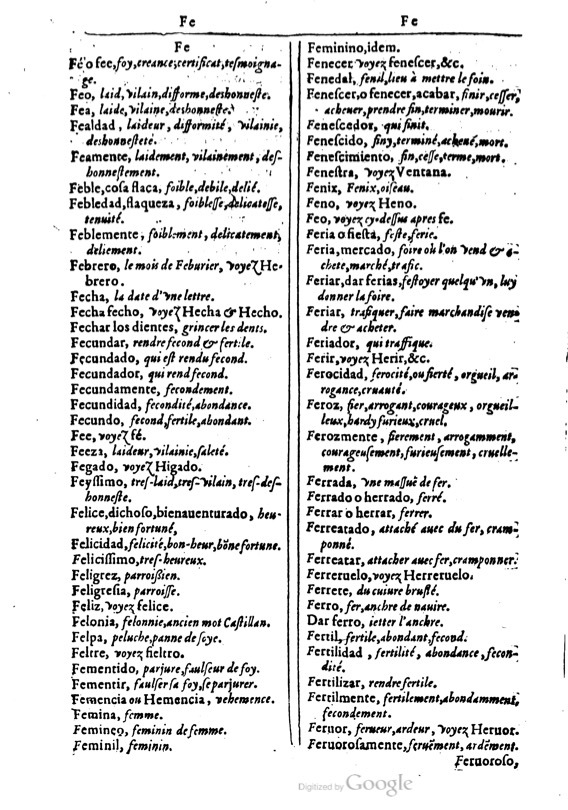 Fe
Fe
Fe
Fé o fee, foy, creance, certificat, tesmoigna-
ge.
Feo, laid, vilain, difforme, deshonneste.
Fea, laide, vilaine, deshonneste.
Fealdad, laideur, difformité, vilainie,
deshonnesteté.
Feamente, laidement, vilainement, des-
honnestement.
Feble, cosa flaca, foible, debile, delié.
Febledad, flaqueza, foiblesse, delicatesse,
tenuité.
Feblemente, foiblement, delicatement,
deliement.
Febrero, le mois de Feburier, voyez He-
brero.
Fecha, la date d'vne lettre.
Fecha fecho, voyez Hecha & Hecho.
Fechar los dientes, grincer les dents.
Fecundar, rendre fecond & fertile.
Fecundado, qui est rendu fecond.
Fecundador, qui rend fecond.
Fecundamente, fecondement.
Fecundidad, fecondité, abondance.
Fecundo, fecond, fertile, abondant.
Fee, voyez fé.
Feeza, laideur, vilainie, saleté.
Fegado, voyez Higado.
Feyssimo, tres-laid, tres-vilain, tres-des-
honneste.
Felice, dichoso, bienauenturado, heu-
reux, bien fortuné,
Felicidad, felicité, bon-heur, bōne fortune.
Felicissimo, tres-heureux.
Feligrez, parroissien.
Feligresia, parroisse.
Feliz, voyez felice.
Felonia, felonnie, ancien mot Castillan.
Felpa, peluche, panne de soye.
Feltre, voyez fieltro.
Fementido, parjure, faulseur de foy.
Fementir, faulser sa foy, se parjurer.
Femencia ou Hemencia, vehemence.
Femina, femme.
Femineo, feminin de femme.
Feminil, feminin.
Feminino, idem.
Fenecer voyez fenescer, &c.
Fenedal, fenil, lieu à mettre le foin.
Fenescer, o fenecer, acabar, finir, cesser,
acheuer, prendre fin, terminer, mourir.
Fenescedor, qui finit.
Fenescido, finy, terminé, acheué, mort.
Fenescimiento, fin, cesse, terme, mort.
Fenestra, voyez Ventana.
Fenix, Fenix, oiseau.
Feno, voyez Heno.
Feo, voyez cy-dessus apres fe.
Feria o fiesta, feste, ferie.
Feria, mercado, foire où l'on vend & a-
chete, marché, trafic.
Feriar, dar ferias, festoyer quelqu'vn, luy
donner la foire.
Feriar, trafiquer, faire marchandise ven-
dre & acheter.
Feriador, qui traffique.
Ferir, voyez Herir, &c.
Ferocidad, ferocité, ou fierté, orgueil, ar-
rogance, cruauté.
Feroz, fier, arrogant, courageux, orgueil-
leux, hardy furieux, cruel.
Ferozmente, fierement, arrogamment,
courageusement, furieusement, cruelle-
ment.
Ferrada, vne massuë de fer.
Ferrado o herrado, ferré.
Ferrar o herrar, ferrer.
Ferreatado, attaché auec du fer, cram-
ponné.
Ferreatar, attacher auec fer, cramponner.
Ferreruelo, voyez Herreruelo.
Ferrete, du cuiure bruslé.
Ferro, fer, anchre de nauire.
Dar ferro, ietter l'anchre.
Fertil, fertile, abondant, fecond.
Fertilidad, fertilité, abondance, fecon-
dité.
Fertilizar, rendre fertile.
Fertilmente, fertilement, abondamment,
fecondement.
Feruor, ferueur, ardeur, voyez Heruor.
Feruorosamente, feruēment, ardēment.
Feruoroso,
Digitized by Google